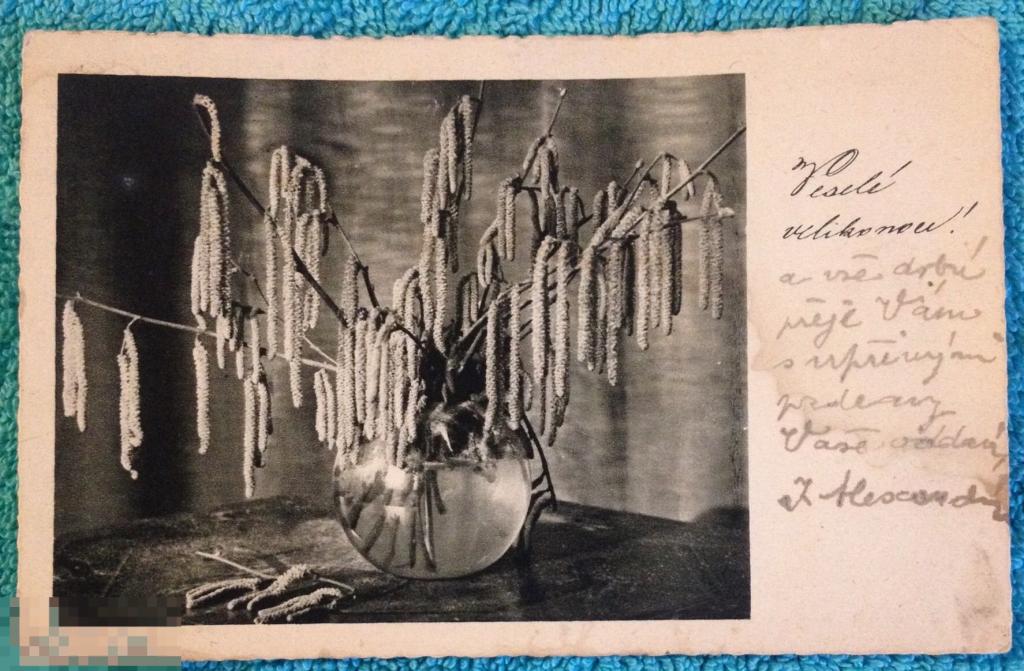 Veselé
velikonoce!
a vše dobré
přeje Vám
s upřímným
pozdravem
Vaše oddaná
J. Alexandr